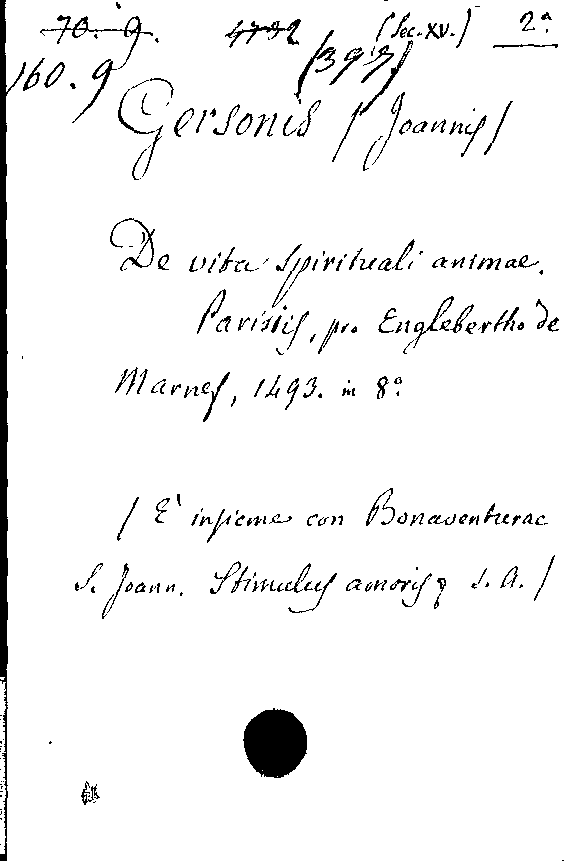 70. 9. 4792 (Sec. XV.) 2ª
160. 9 (397)
Gersonis (Joannis)
De vita spirituali animae.
Parisiis, pro Englebertho de
Marnef, 1493. in 8º
(E' insieme con Bonaventurae
S. Joann. Stimulus amoris, S. A.)